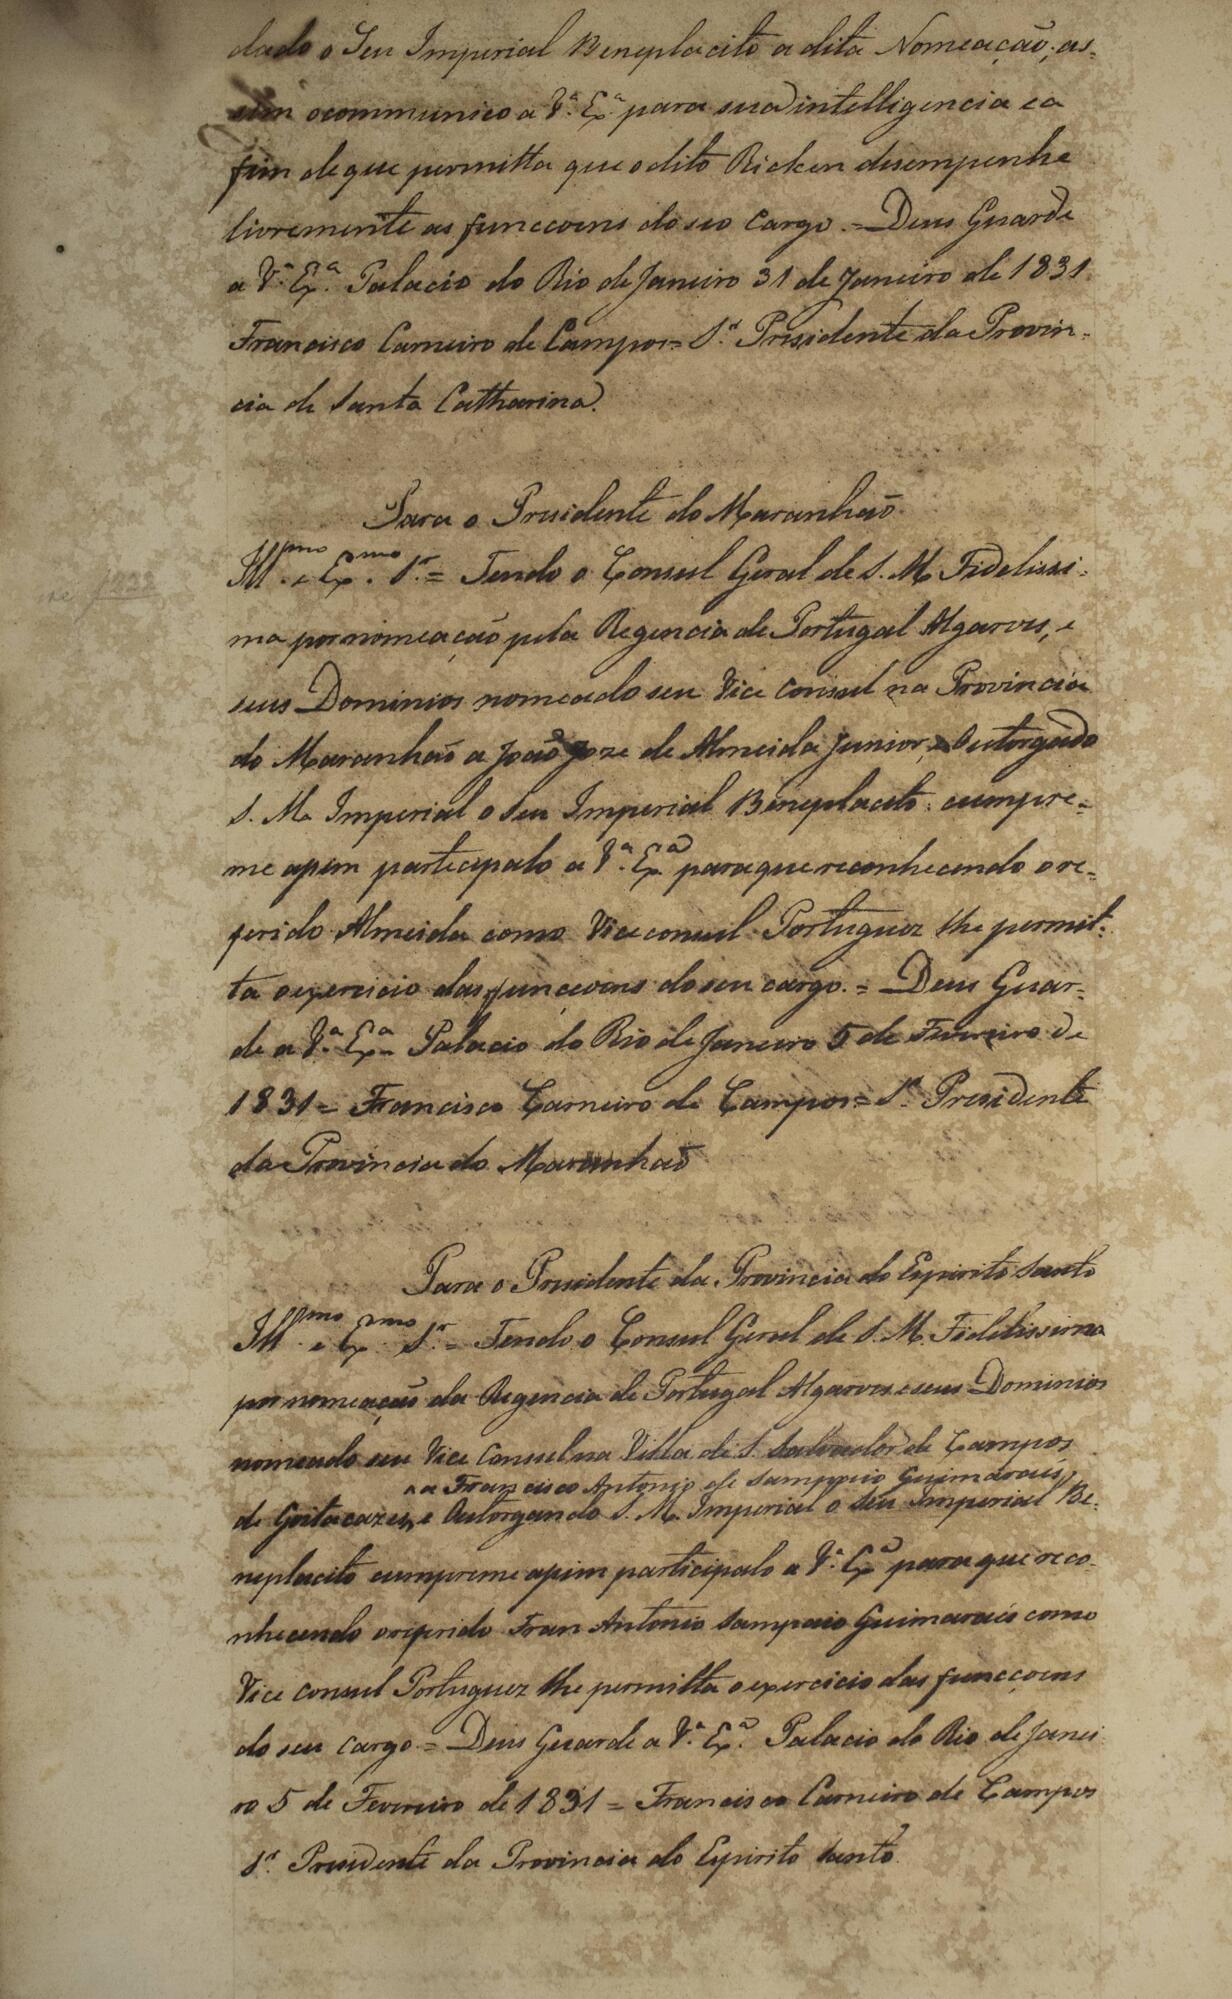 dado o Seu Imperial Beneplacito a dita Nomeação, as-
sim o communico a V.ª Ex.ª para sua intelligencia e a
fim de que permitta que o dito Ricken desempenhe
livremente as funccoens do seo Cargo. = Deus Guarde
a V.ª Ex.ª Palacio do Rio de Janeiro 31 de Janeiro de 1831
Francisco Carneiro de Campos = S.r Presidente da Provin-
cia de Santa Catharina.
Para o Presidente do Maranhaõ
Ill.mo e Ex.mo S.r = Tendo o Consul Geral de S. M. Fidelissi-
ma por nomeação pela Regencia de Portugal Algarves, e
seus Dominios nomeado seu Vice Consul na Provincia
do Maranhaõ a Joaõ Joze de Almeida Junior, e Outorgado
S. M. Imperial o Seu Imperial Beneplacito: cumpre-
me assim partecipalo a V.ª Ex.ª para que reconhecendo o re-
ferido Almeida como Vice consul Portuguez lhe permit-
ta o exercicio das funçoens do seu cargo. = Deus Guar-
de a V.ª Ex.ª Palacio do Rio de Janeiro 5 de Fevereiro de
1831 = Francisco Carneiro de Campos = S.r Presidente
da Provincia do Maranhaõ
Para o Presidente da Provincia do Espirito Santo
Ill.mo e Ex.mo S.r = Tendo o Consul Geral de S. M. Fidelissima
por nomeação da Regencia de Portugal Algarves e seus Dominios
nomeado seu Vice Consul na Villa de S. Salvador de Campos
a Francisco Antonio de Sampaio Guimaraẽs,
de Goitacazes, e Outorgando S. M. Imperial o Seu Imperial Be-
neplacito cumpreme assim participalo a V.ª Ex.ª para que reco-
nhecendo o referido Fran Antonio Sampaio Guimaraẽs como
Vice consul Portuguez lhe permitta o exercicio das funccoens
do seu Cargo = Deus Guarde a V.ª Ex.ª Palacio do Rio de Janei
ro 5 de Fevereiro de 1831 = Francisco Carneiro de Campos
S.r Presidente da Provincia do Espirito Santo